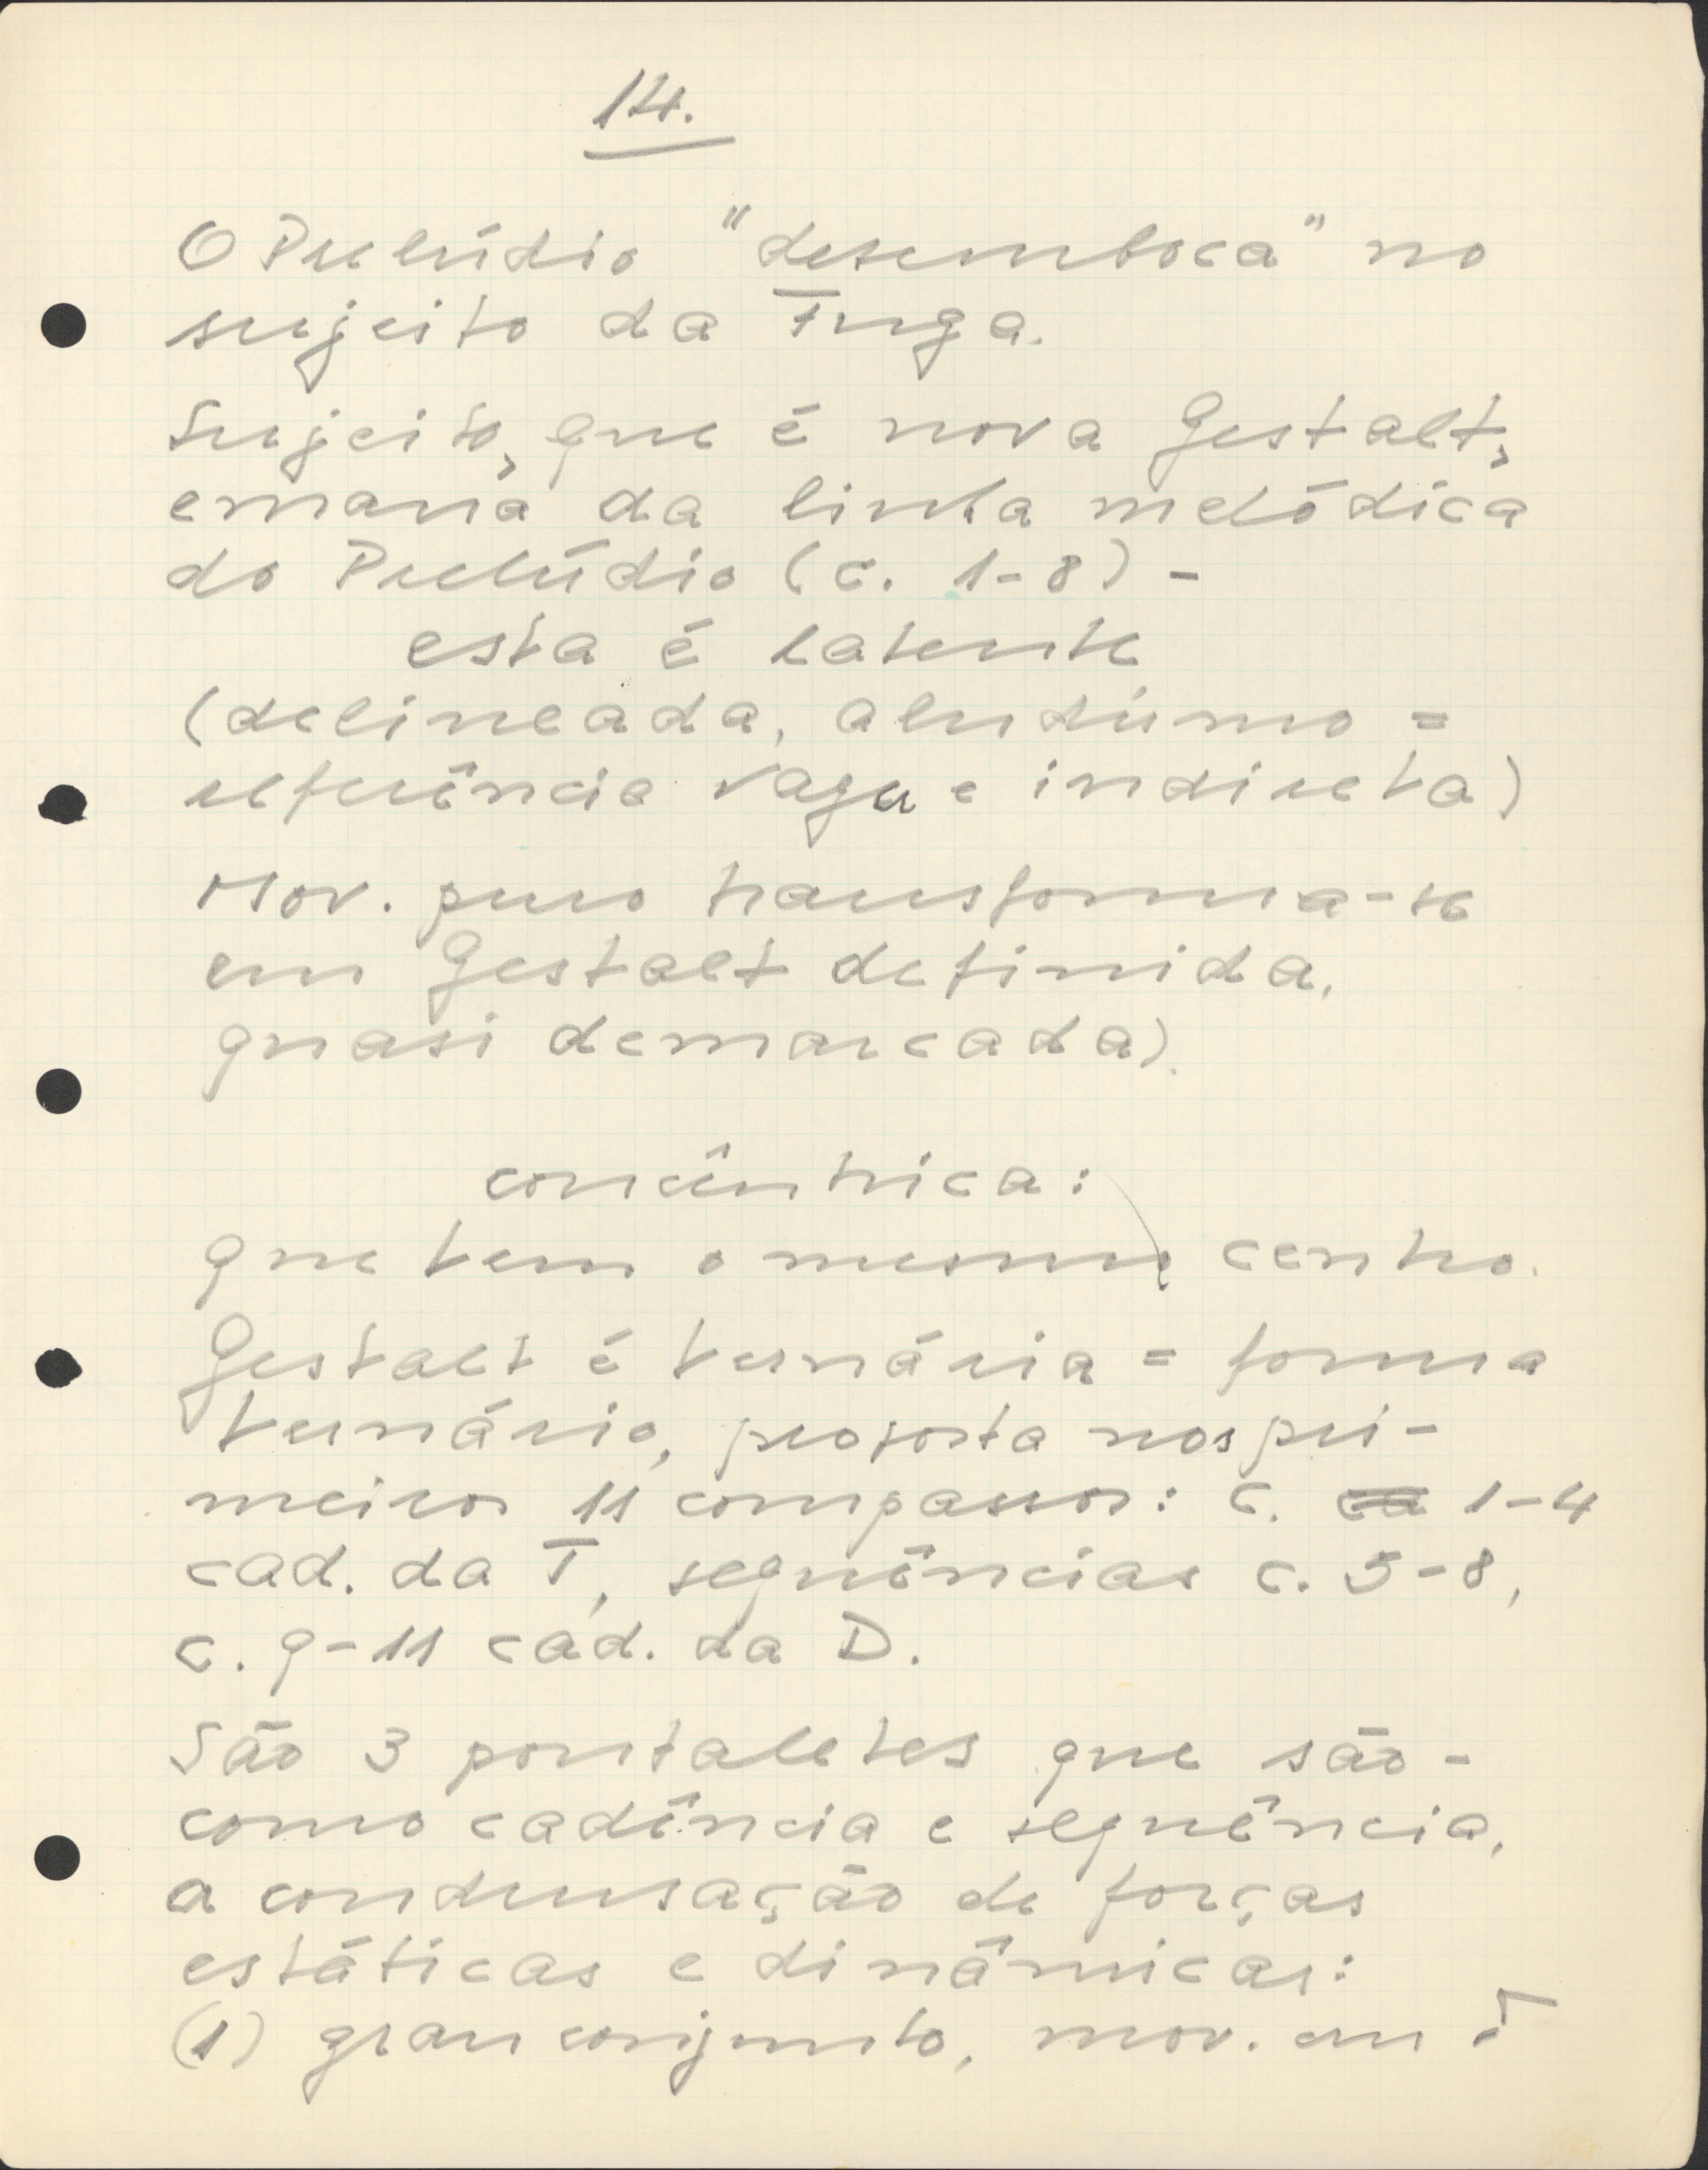 14.
O Prelúdio "desemboca" no
sujeito da Fuga.
Sujeito, que é nova Gestalt,
emana da linha melódica
do Prelúdio (c. 1-8) -
esta é latente
(delineada, aludimo =
referência vaga e indireta)
Mov. puro transforma-se
em Gestalt definida,
quasi demarcada).
concêntrica:
que tem o mesmo centro.
Gestalt é ternária = forma
ternário, proposta nos pri-
meiros 11 compassos: c. 1-4
cad. da T, sequências c. 5-8,
c. 9-11 cad. da D.
São 3 pontaletes que são -
como cadência e sequência,
a condensação de forças
estáticas e dinâmicas:
(1) grau conjunto, mov. em